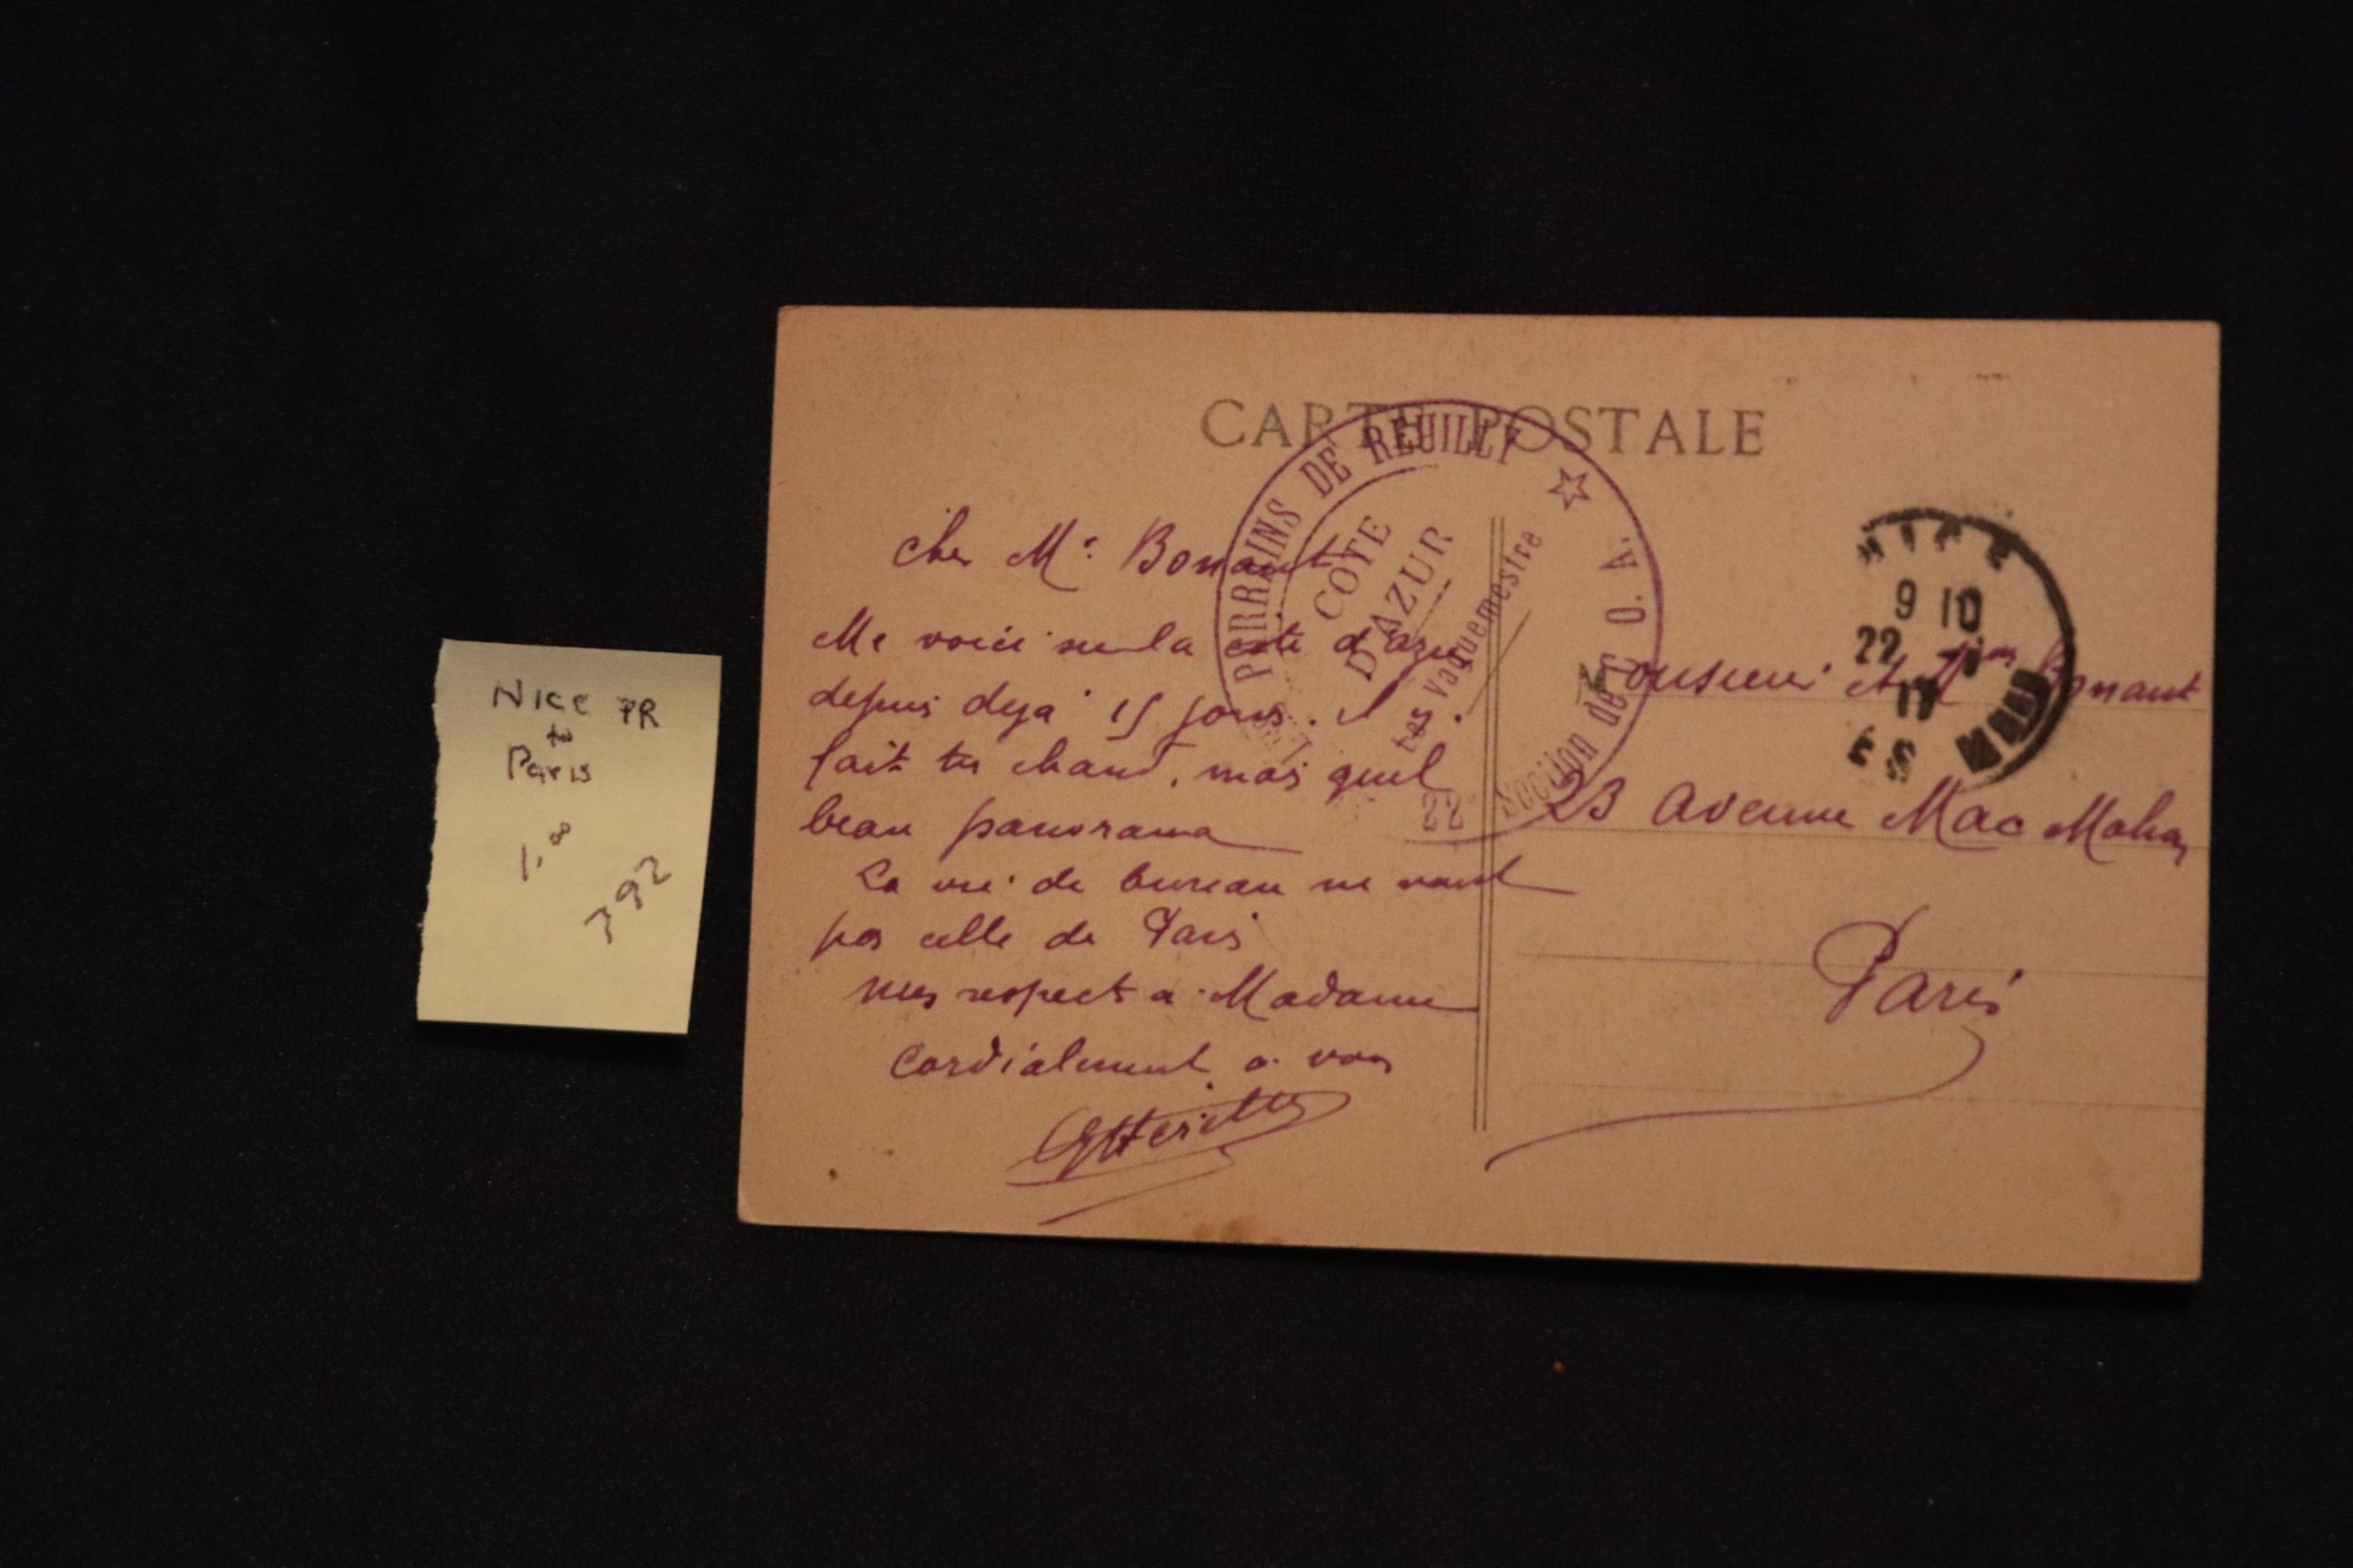 NICE FR
to
Paris
1.00
392
CARTE POSTALE
PARRAINS DE REUILLY
COTE
D'AZUR
Les Vaguemestre
22e Section de C.O.A.
NICE
9 10
22
17
ES MAR
Cher Mr Bonant
Me voici sur la cote d'azur
depuis deja 15 jours. il y
fait tres chaud, mais quel
beau panorama
La vie de bureau ne vaut
pas celle de Paris
mes respects a Madame
Cordialement a vous
Monsieur et Mme Bonant
23 Avenue Mac Mahon
Paris